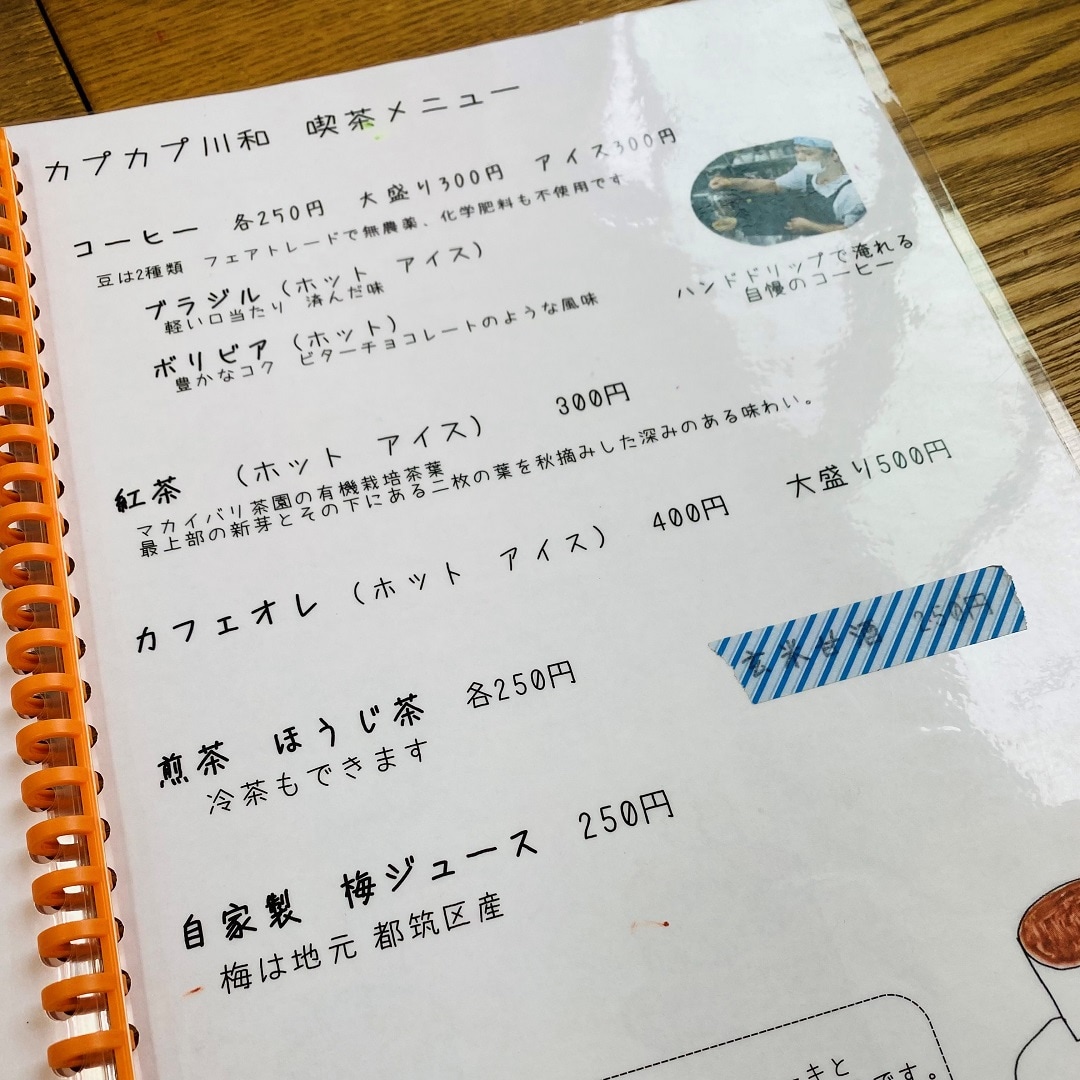 カプカプ川和　喫茶メニュー
コーヒー　各250円　大盛り300円　アイス300円
豆は2種類　フェアトレードで無農薬、化学肥料も不使用です
ブラジル（ホット　アイス）
軽い口当たり　済んだ味
ボリビア（ホット）
豊かなコク　ビターチョコレートのような風味
ハンドドリップで淹れる
自慢のコーヒー
紅茶　（ホット　アイス）　300円
マカイバリ茶園の有機栽培茶葉
最上部の新芽とその下にある二枚の葉を秋摘みした深みのある味わい。
カフェオレ（ホット　アイス）　400円　大盛り500円
玄米甘酒　250円
煎茶　ほうじ茶　各250円
冷茶もできます
自家製　梅ジュース　250円
梅は地元 都筑区産
きと
です。